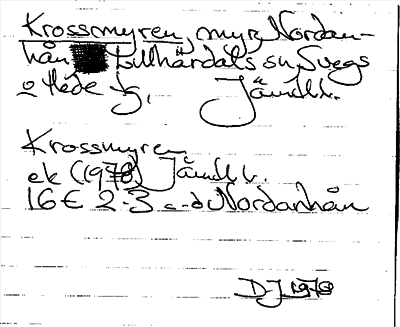 Krossmyren, myr, Nordan-
hån Lillhärdals sn, Svegs
o Hede Jämtl l.
Krossmyren
ek (1978) Jämtl l.
16E 2-3 c-d Nordanhån
DJ 1978